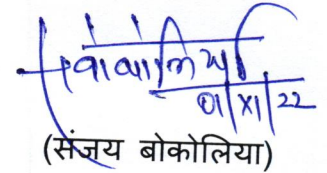 01/XI/22
(संजय बोकोलिया)